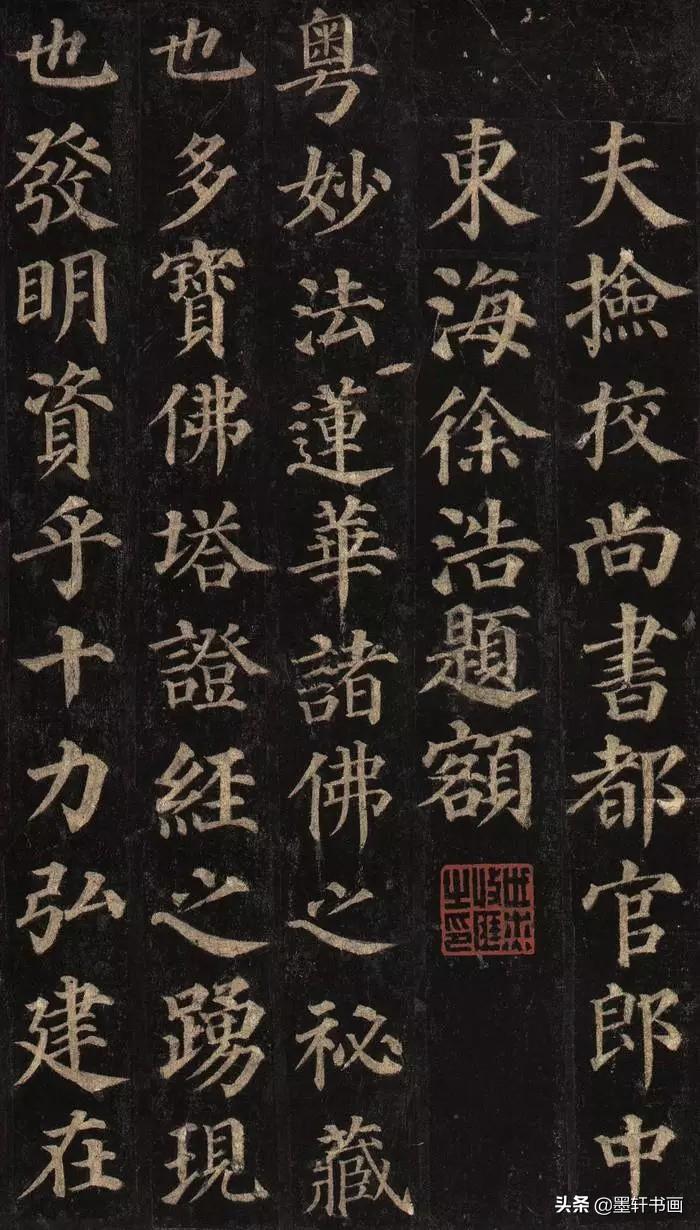 夫撿挍尚書都官郎中
東海徐浩題額
粵妙法蓮華諸佛之祕藏
也多寶佛塔證經之踴現
也發明資乎十力弘建在
头条 @墨轩书画